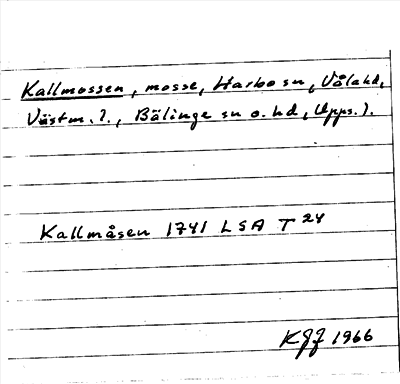 Kallmossen, mosse, Harbo sn, Våla hd,
Västm. l., Bälinge sn o. hd, Upps. l.
Kallmåsen 1741 LSA T 24
KGJ 1966